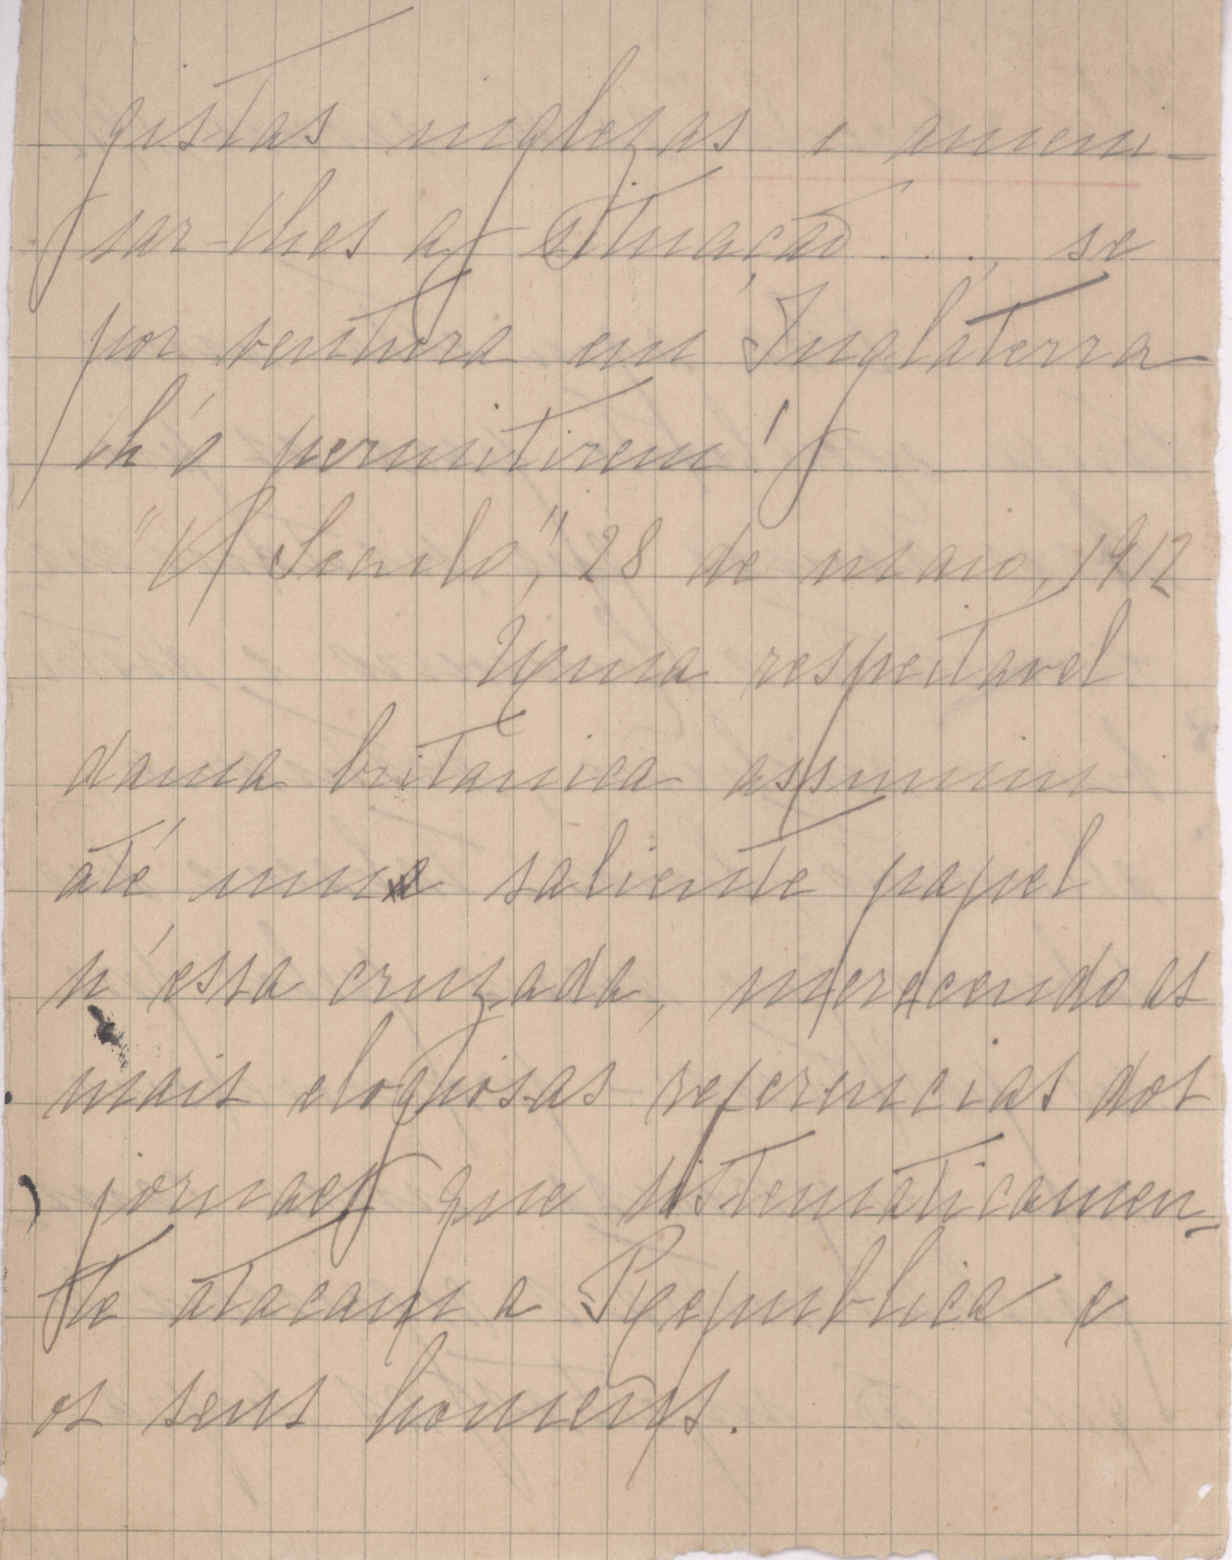 gistas inglezas e ameni-
sar-lhes a situação ..., se
por ventura em Inglaterra
lh'o permitirem!
"O Seculo", 28 de maio, 1912
Uma respeitavel
dama britanica assumiu
até um saliente papel
n'essa cruzada, merecendo as
mais elogiosas referencias dos
jornaes que sistematicamen-
te atacam a Republica e
os seus homens.